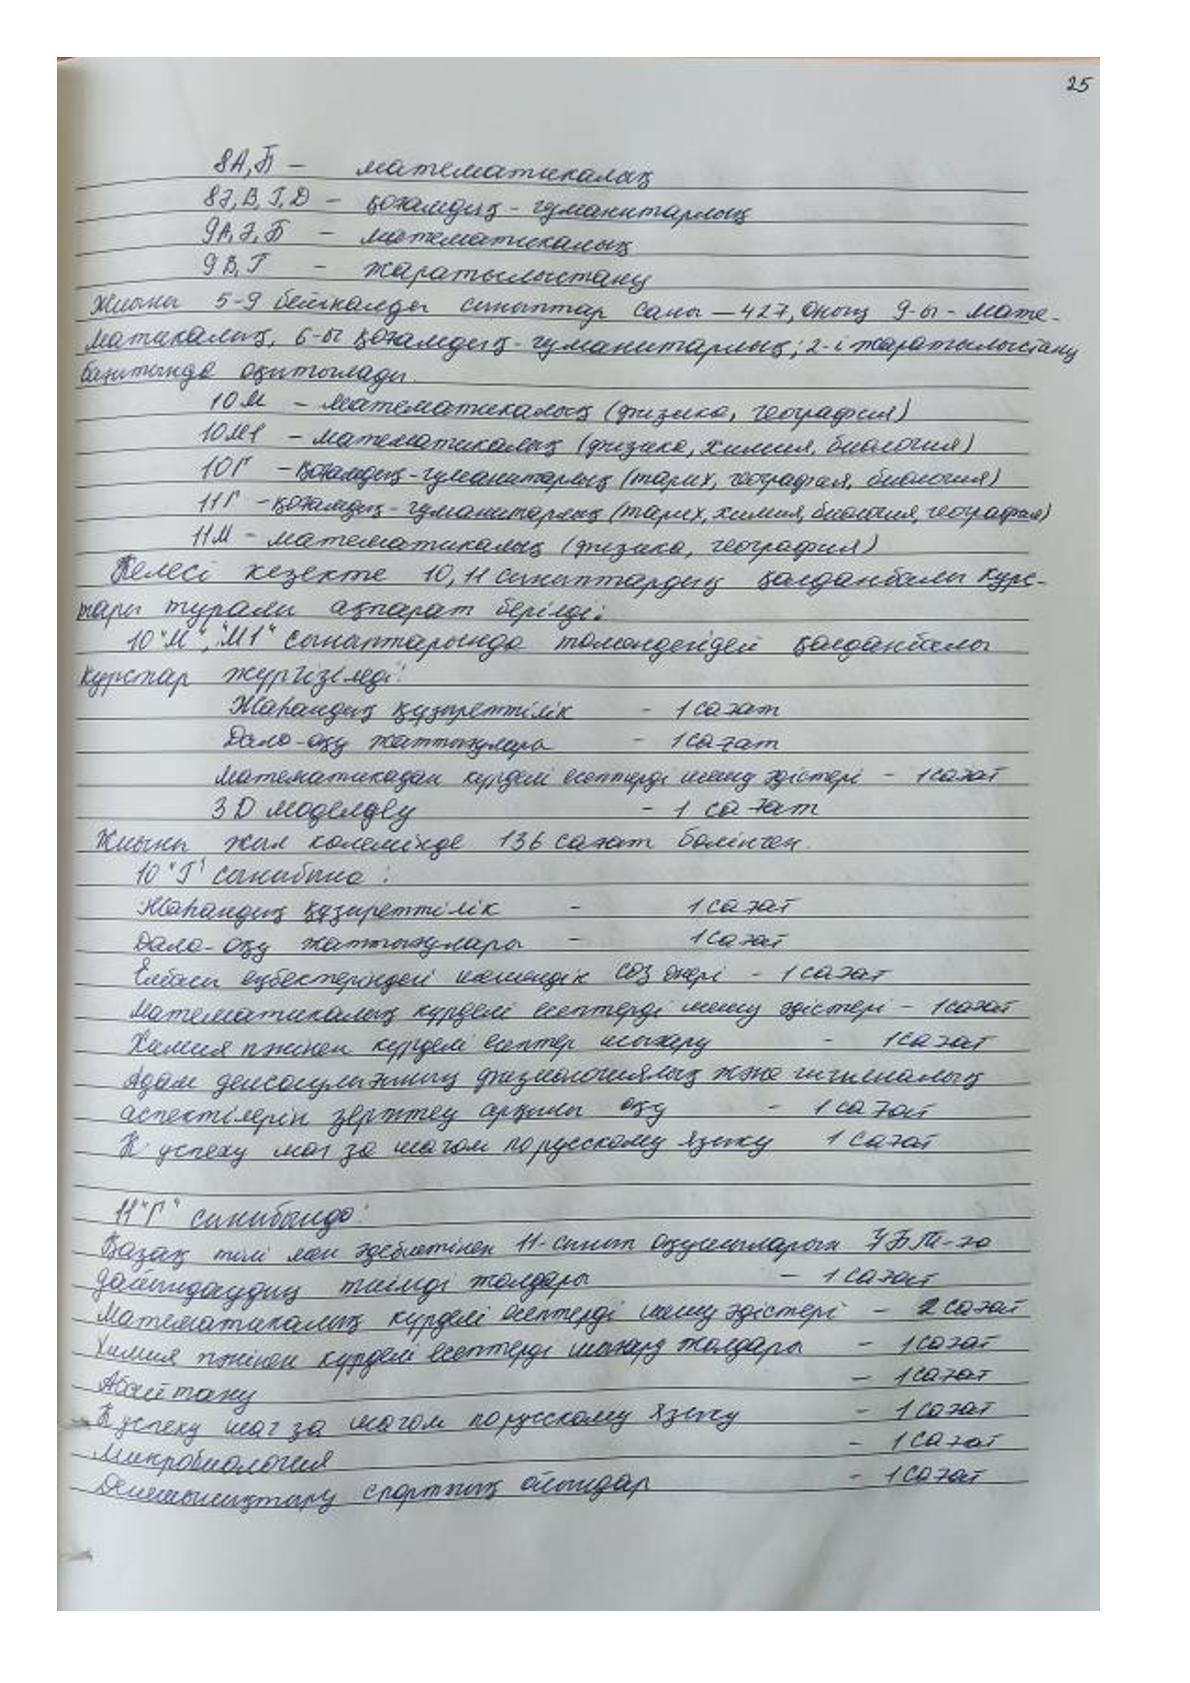 25
8А,Б – математикалық
8Ә,В,Г,Д – қоғамдық-гуманитарлық
9А,Ә,Б – математикалық
9В,Г – жаратылыстану
Жиыны 5-9 бейіналды сыныптар саны – 427, оның 9-ы - мате-
матикалық, 6-ы қоғамдық-гуманитарлық; 2-і жаратылыстану
бағытында оқытылады.
10М – математикалық (физика, география)
10М1 – математикалық (физика, химия, биология)
10Г – қоғамдық-гуманитарлық (тарих, география, биология)
11Г – қоғамдық-гуманитарлық (тарих, химия, биология, география)
11М – математикалық (физика, география)
Келесі кезекте 10,11 сыныптардың қолданбалы курс-
тары туралы ақпарат берілді:
10 "М", "М1" сыныптарында төмендегідей қолданбалы
курстар жүргізіледі:
Жаһандық құзыреттілік – 1 сағат
Дала-оқу жаттығулары – 1 сағат
Математикадан күрделі есептерді шешу әдістері – 1 сағат
3D моделдеу – 1 сағат
Жиыны жыл көлемінде 136 сағат бөлінген.
10 "Г" сыныбына:
Жаһандық құзыреттілік – 1 сағат
Дала-оқу жаттығулары – 1 сағат
Елбасы еңбектеріндегі шешендік сөз өнері – 1 сағат
Математикалық күрделі есептерді шешу әдістері – 1 сағат
Химия пәнінен күрделі есептер шығару – 1 сағат
Адам денсаулығының физиологиялық және гигиеналық
аспектілерін зерттеу арқылы оқу – 1 сағат
К успеху шаг за шагом по русскому языку 1 сағат
11 "Г" сыныбында:
Қазақ тілі мен әдебиетінен 11-сынып оқушыларын ҰБТ-ға
дайындаудың тиімді жолдары – 1 сағат
Математикалық күрделі есептерді шешу әдістері – 2 сағат
Химия пәнінен күрделі есептерді шығару жолдары – 1 сағат
Абайтану – 1 сағат
К успеху шаг за шагом по русскому языку – 1 сағат
Микробиология – 1 сағат
спорттық ойындар – 1 сағат